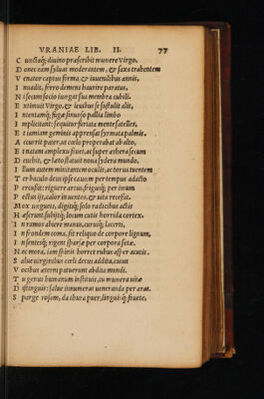 VRANIAE LIB. II. 77
C unctaq; diuino præscribit munere Virgo,
D onec eam syluas moderantem, & saxa trahentem
V enator captus forma, & iuuenilibus annis,
I nuadit, ferro demens haurire paratus,
N i secum socio iungat sua membra cubili.
E xtinuit Virgo, & leuibus se sustulit alis,
I n mentemq; fugæ sinuoso pallia limbo
I mplicitant: sequitur feriata mente satelles,
E t iamiam geminis apprensat syrmata palmis.
A ccurrit pater, ac cœlo properabat ab alto,
E t natam amplexus fouet, ac super æthera secum
D euehit, & lato statuit noua sydera mundo.
I llum autem minitantem oculis, ac torua tuentem
T er baculo deus ipse cauum per tempus adacto
P ercussit: riguere artus, friguitq; per imum
P ectus iit calor in uentos, & uita reuersit.
M ox ungueis, digitiq; solo radicibus actis
H æserunt: subijtq; locum cutis horrida cortex.
I n ramos abiere manus, curuiq; lacerti,
I n frondem coma, fit reliquo de corpore lignum,
I nsenteisq; rigent sparsæ per corpora setæ.
N ec mora, iam stirit horret rubus asper acutis.
S alue uirginibus cœli decus addita, cuius
V ocibus æternum paturunt abdita mundi.
T u genus humanum instituis, tu munera uitæ
D istinguis: salue innumeras ueneranda per aras.
S parge rosam, da thura puer, linguisq; fauete,